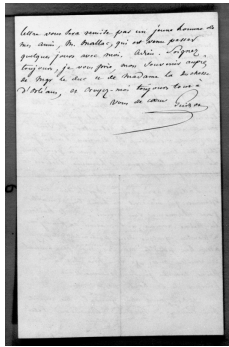 lettre vous sera remise par un jeune homme de
mes amis, M. Mallac, qui est venu passer
quelques jours avec moi. Adieu. Soignez
toujours, je vous prie, mon souvenir auprès
de Mgr le duc et de Madame la duchesse
d'Orléans, et croyez-moi toujours tout à
vous de cœur Guizot